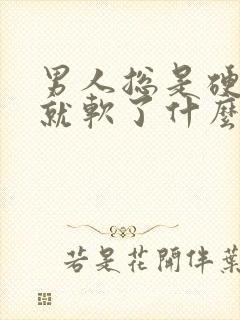 男人总是硬
就软了什麼
若是花開伴葉